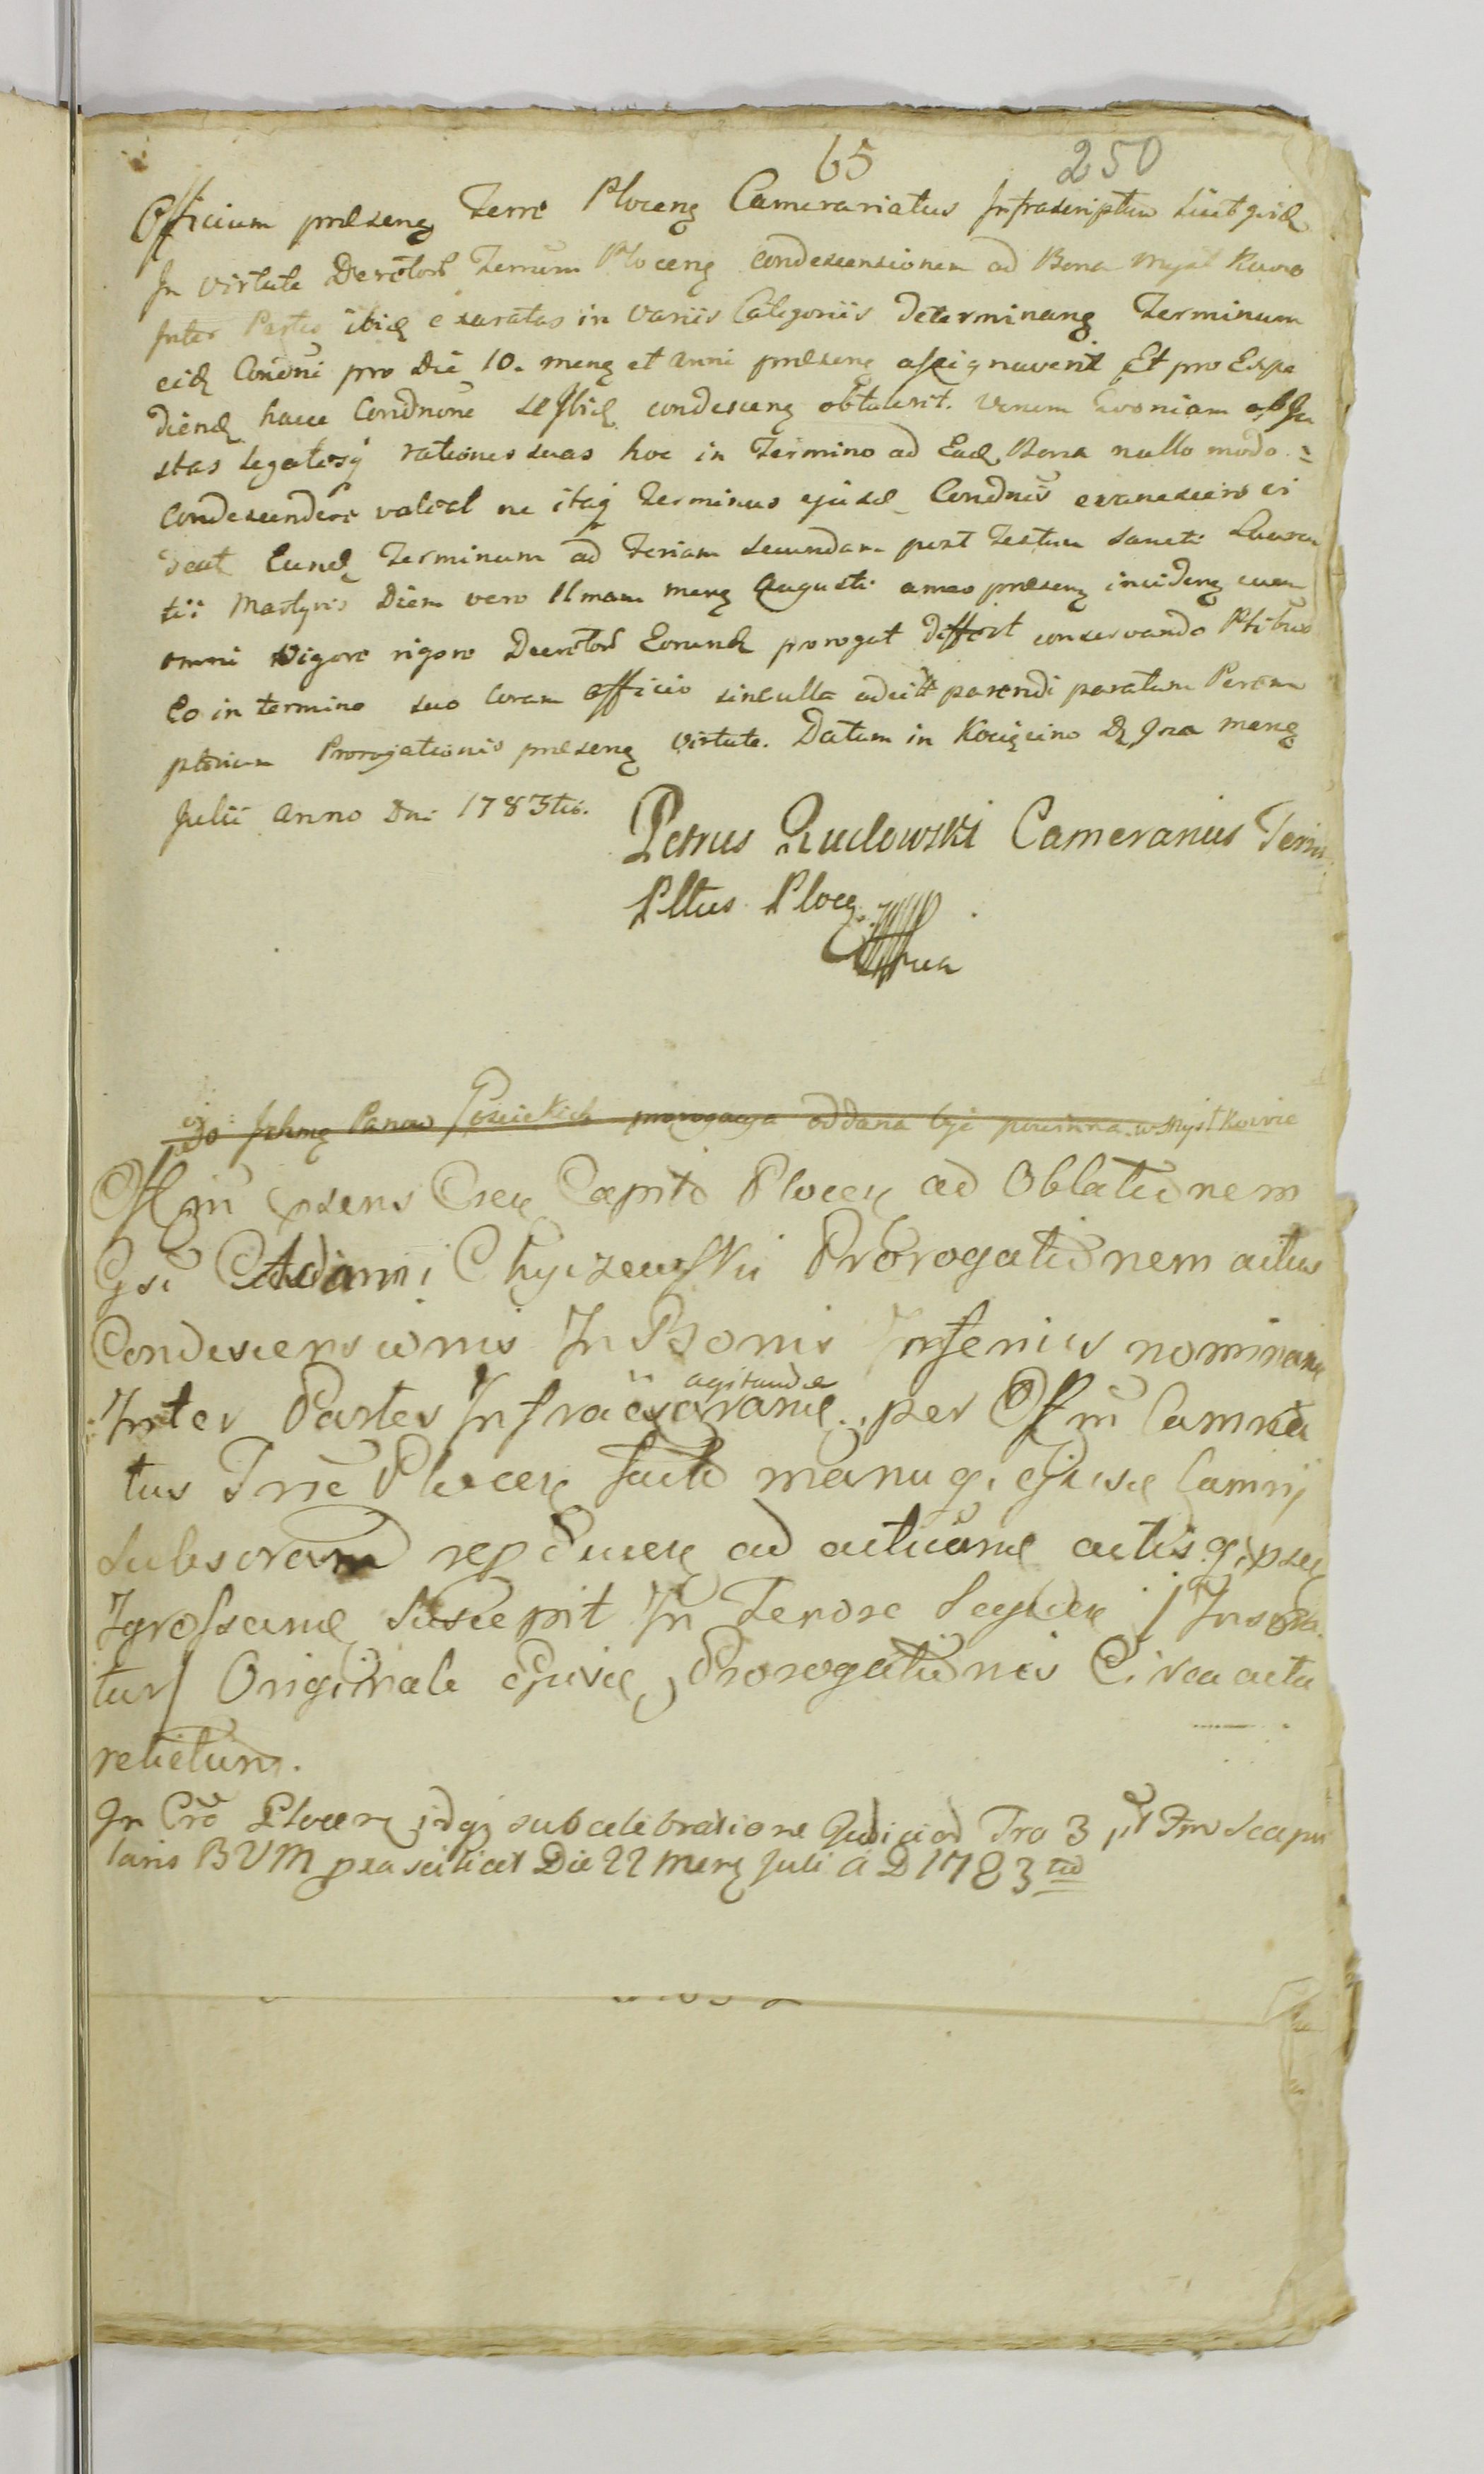 65 250
Officium præsens Terræ Plocens Camerariatus Infrascriptum sicut quid
In virtute Decretor Terrum Plocens condescensionem ad Bona Myst Kowo
Inter Partes ibid exaratas in variis Categoriis determinans Terminum
eid Condni pro Die 10. mens et anni præsens assignaverit Et pro Expe
diend hacce Condnone se Ibid condescens obtulerit. Verum Quoniam ob Ju
stas legalesq rationes suas hoc in Termino ad Ead Bona nullo modo =
Condescendere valeat ne itaq Terminus ejusd Condnis evanescere vi
deat Eund Terminum ad Feriam secundam post Festum Sancti Lauren
tii Martyris Diem vero 11mam mens Augusti anno præsens incidens cum
omni vigore rigore Decretor Eorund prorogat differt conservando Ptibus
Eo in termino suo Coram Officio sine ulla adcitt parendi paratum Perem
ptorium Prorogationis præsens virtute. Datum in Kocięcino D mens
Julii Anno Dni 1783tio.
Petrus Rudowski Camerarius Terrae
Pltus Ploce
mpa
Do Jchmę Panow prorogacya oddana być powinna w MystKowie
Offm præsens Cseu Capit Plocen ad Oblationem
Gsi Adami Chyczewskii Prorogationem actus
Condescensionis In Bonis Inferius nominan
agitandæ
Inter Partes Infra exarand per Offm Camra
tus Trre Plocen facto manuq Ejusd Camrij
Subscram reproducen ad acticand actisq prse
Igrossand Suscepit In Tenore Sequen / Insera
tur / Originale Ejusd Prorogationis Circa acta
relictum.
In Cro Plocen idq sub celebratione Judicior Fra 3 pt Fm Scapu
laris BVM pea scilicet Die 22 Mens Juli A D 1783 tio